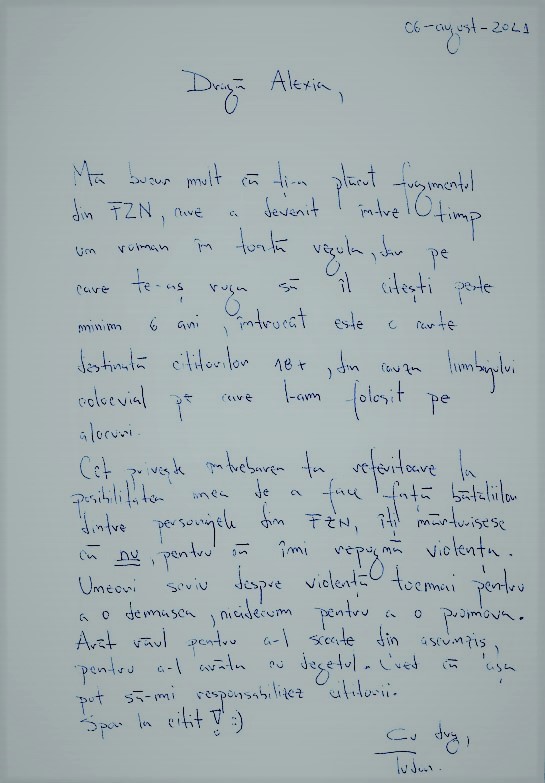 06-august-2021
Dragă Alexia,
Mă bucur mult că ți-a plăcut fragmentul
din FZN, care a devenit între timp
un roman în toată regula, dar pe
care te-aș ruga să îl citești peste
minim 6 ani, întrucât este o carte
destinată cititorilor 18+, din cauza limbajului
colocvial pe care l-am folosit pe
alocuri.
Cât privește întrebarea ta referitoare la
posibilitatea mea de a face față bătăliilor
dintre personajele din FZN, îți mărturisesc
că nu, pentru că îmi repugnă violența.
Uneori scriu despre violență tocmai pentru
a o demasca, nicidecum pentru a o promova.
Arăt răul pentru a-l scoate din ascunziș,
pentru a-l arăta cu degetul. Cred că așa
pot să-mi responsabilizez cititorii.
Spor la citit! :)
Cu drag,